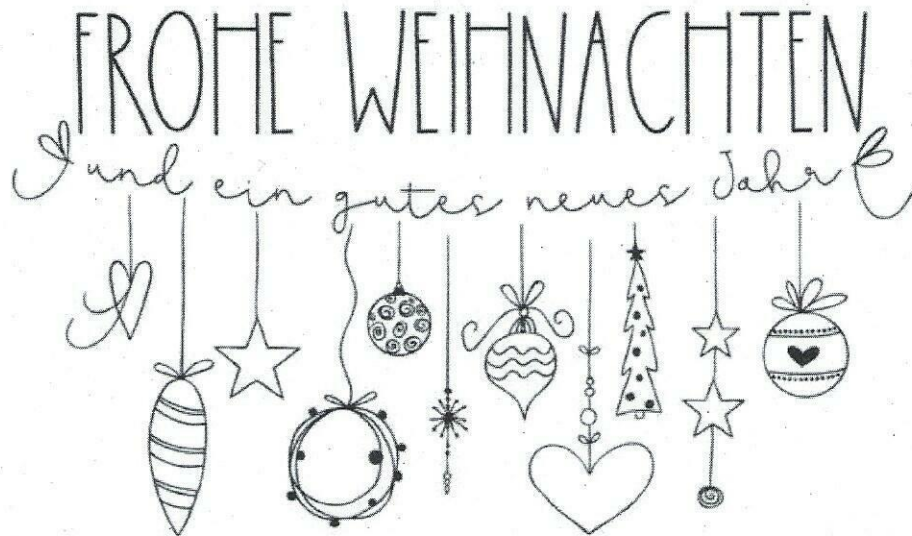 FROHE WEIHNACHTEN
und ein gutes neues Jahr